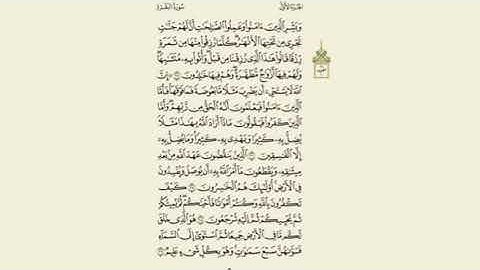 الجزء الأول سورة البقرة
وَبَشِّرِ الَّذِينَ ءَامَنُوا وَعَمِلُوا الصَّالِحَاتِ أَنَّ لَهُمْ جَنَّاتٍ
تَجْرِي مِن تَحْتِهَا الْأَنْهَارُ كُلَّمَا رُزِقُوا مِنْهَا مِن ثَمَرَةٍ
رِّزْقًا قَالُوا هَٰذَا الَّذِي رُزِقْنَا مِن قَبْلُ وَأُتُوا بِهِ مُتَشَابِهًا
وَلَهُمْ فِيهَا أَزْوَاجٌ مُّطَهَّرَةٌ وَهُمْ فِيهَا خَالِدُونَ ۝ إِنَّ
اللَّهَ لَا يَسْتَحْيِي أَن يَضْرِبَ مَثَلًا مَّا بَعُوضَةً فَمَا فَوْقَهَا فَأَمَّا
الَّذِينَ ءَامَنُوا فَيَعْلَمُونَ أَنَّهُ الْحَقُّ مِن رَّبِّهِمْ وَأَمَّا
الَّذِينَ كَفَرُوا فَيَقُولُونَ مَاذَا أَرَادَ اللَّهُ بِهَٰذَا مَثَلًا
يُضِلُّ بِهِ كَثِيرًا وَيَهْدِي بِهِ كَثِيرًا وَمَا يُضِلُّ بِهِ
إِلَّا الْفَاسِقِينَ ۝ الَّذِينَ يَنقُضُونَ عَهْدَ اللَّهِ مِن بَعْدِ
مِيثَاقِهِ وَيَقْطَعُونَ مَا أَمَرَ اللَّهُ بِهِ أَن يُوصَلَ وَيُفْسِدُونَ
فِي الْأَرْضِ أُولَٰئِكَ هُمُ الْخَاسِرُونَ ۝ كَيْفَ
تَكْفُرُونَ بِاللَّهِ وَكُنتُمْ أَمْوَاتًا فَأَحْيَاكُمْ ثُمَّ يُمِيتُكُمْ
ثُمَّ يُحْيِيكُمْ ثُمَّ إِلَيْهِ تُرْجَعُونَ ۝ هُوَ الَّذِي خَلَقَ
لَكُم مَّا فِي الْأَرْضِ جَمِيعًا ثُمَّ اسْتَوَىٰ إِلَى السَّمَاءِ
فَسَوَّاهُنَّ سَبْعَ سَمَاوَاتٍ وَهُوَ بِكُلِّ شَيْءٍ عَلِيمٌ ۝